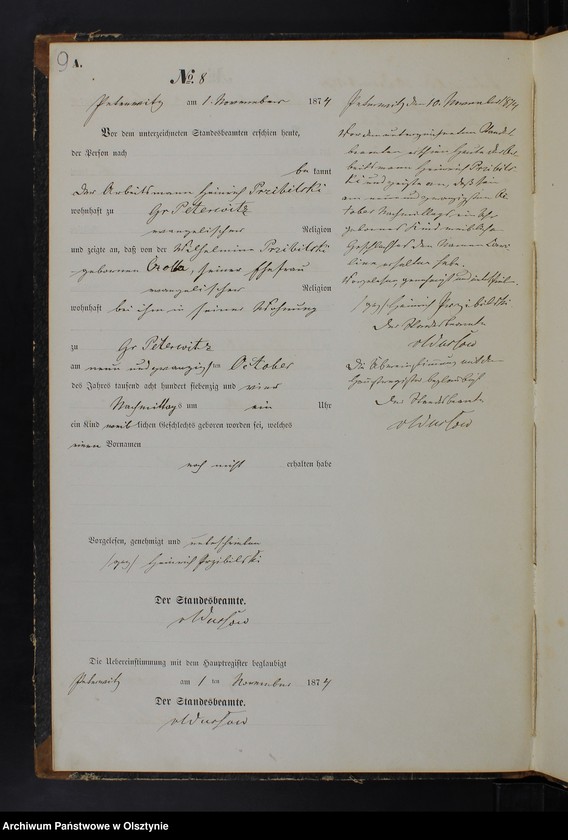 9
A.
No. 8
Peterwitz am 1. November 1874
Vor dem unterzeichneten Standesbeamten erschien heute,
der Person nach
be kannt
der Arbeitsmann Heinrich Przibilski
wohnhaft zu Gr Peterwitz
evangelischer Religion
und zeigte an, daß von der Wilhelmine Przibilski
gebornen seiner Ehefrau
evangelischer Religion
wohnhaft bei ihm in seiner Wohnung
zu Gr Peterwitz
am neun und zwanzigsten October
des Jahres tausend acht hundert siebenzig und vier
Nachmittags um ein Uhr
ein Kind weiblichen Geschlechts geboren worden sei, welches
einen Vornamen
noch nicht erhalten habe
Vorgelesen, genehmigt und unterschrieben
(gez) Heinrich Przibilski
Der Standesbeamte.
Die Uebereinstimmung mit dem Hauptregister beglaubigt
Peterwitz am 1 ten November 1874
Der Standesbeamte.
Peterwitz den 10. November 1874
Vor dem unterzeichneten Standes
beamten erschien heute der Ar
beitsmann Heinrich Przibils
ki und zeigte an, daß sein
am neun und zwanzigsten Oc
tober Nachmittags ein Uhr
gebornes Kind weiblichen
Geschlechts den Namen Caro
line erhalten habe.
Vorgelesen, genehmigt und unterschr.
(gez) Heinrich Przibilski
Der Standesbeamte
Die Übereinstimmung mit dem
Hauptregister beglaubigt
Der Standesbeamte
Archiwum Państwowe w Olsztynie